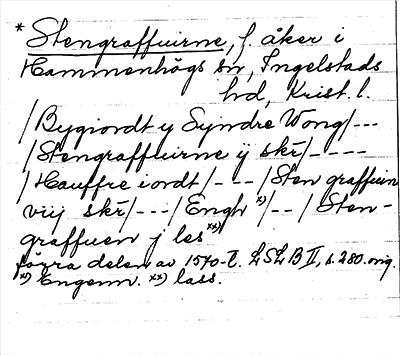 * Stengraffuirne, f. åker i
Hammenhögs sn, Ingelstads
hd, Krist. l.
/Bygiordt y Syndre Wong/---
/Stengraffuirne ÿ skr̄/----
/Hauffre iordt/---/Sten graffuin
viij skr̄/---/Engh x)/--/Sten-
graffuen j les xx)/
förra delen av 1570-t. LSLB II, s. 280. orig.
x) Engenn. xx) lass.